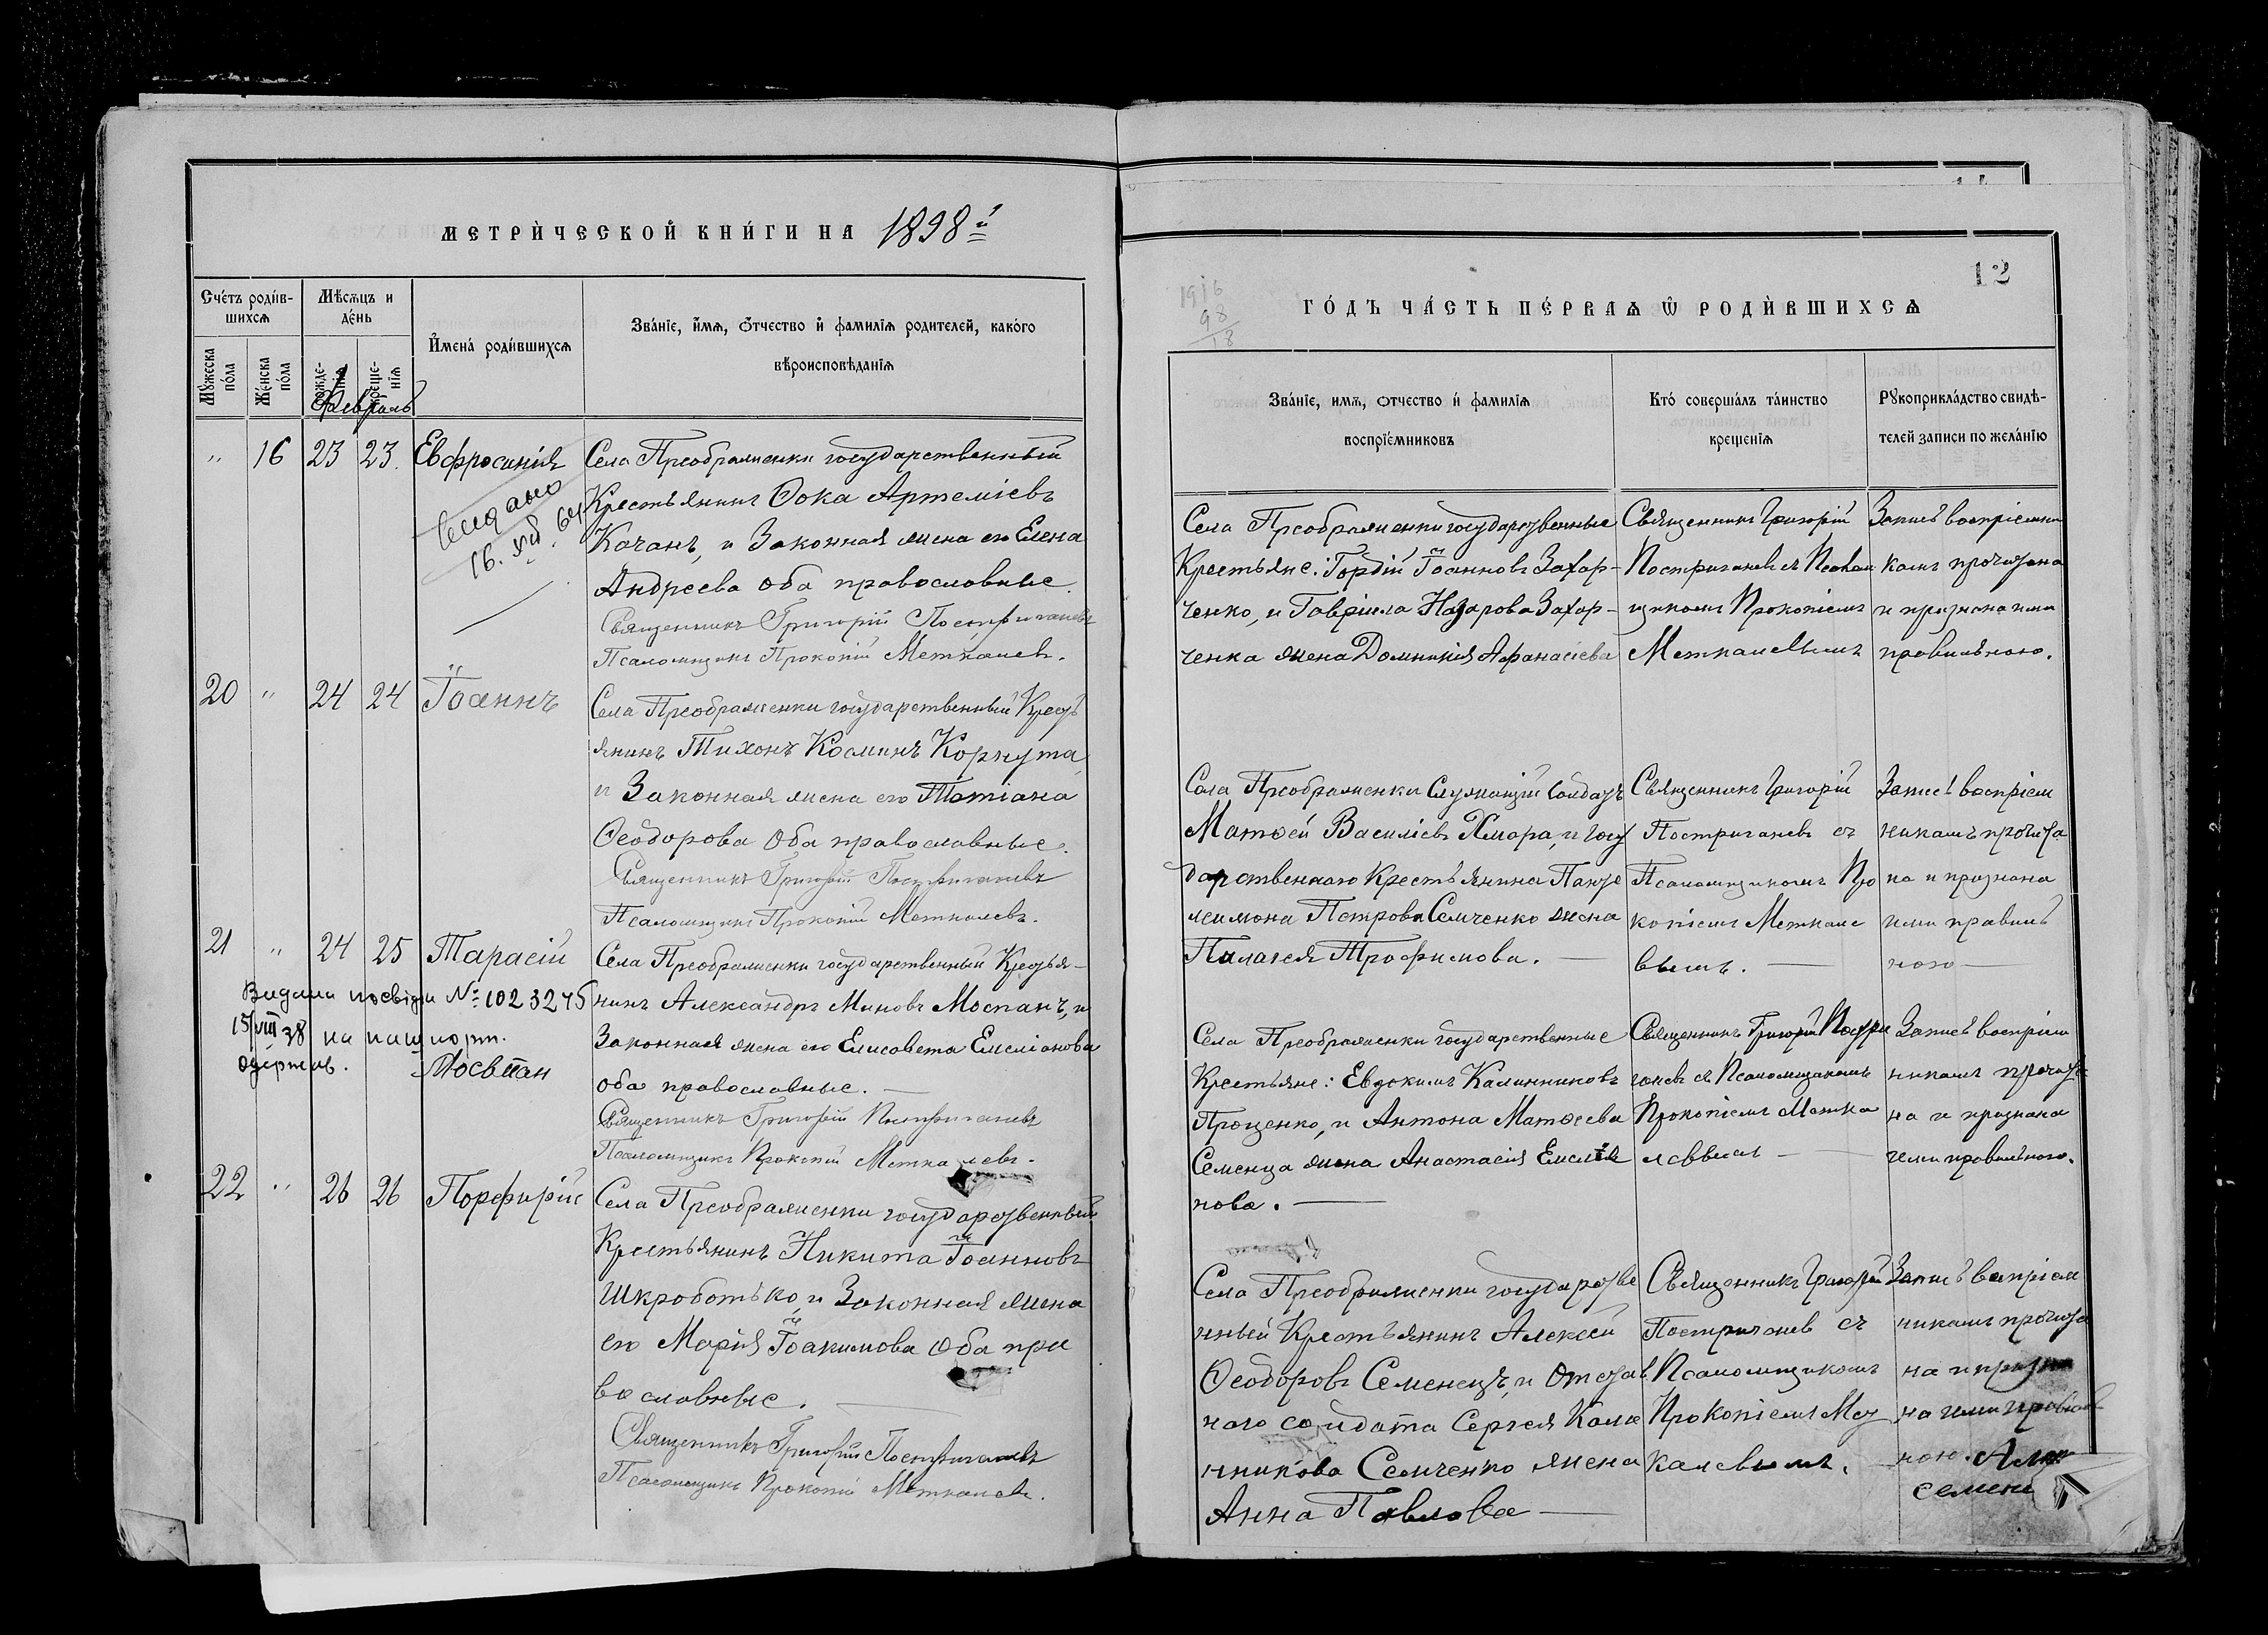 МЕТРИ́ЧЕСКОЙ КНИ́ГИ НА 1898й
Сче́тъ роди́в-
шихсѧ
Мѣсѧцъ и
де́нь
И҆мена́ роди́вшихсѧ
Зва́нїе, и҆́мѧ, ѻ҆́тчество и҆ фамилїѧ родителей, како́го
вѣроисповѣданїѧ
Мꙋжеска по́ла
Же́нска по́ла
Февраль
" 16 23 23. Евфросинія
Села Преображенки государственный
Крестьянинъ Ѳока Артеміевъ
Качанъ, и Законная жена его Елена
Андреева оба православные.
Священникъ Григорій Постригачевъ
Псаломщикъ Прокопій Меткалевъ.
видано
16. XII. 64
20 " 24 24 Іоаннъ
Села Преображенки государственный Кресть
янинъ Тихонъ Косминъ Корнута,
и Законная жена его Татіана
Ѳеодорова оба православные.
Священникъ Григорій Постригачевъ
Псаломщикъ Прокопій Меткалевъ.
21 " 24 25 Тарасій
Села Преображенки государственный Крестья-
нинъ Александръ Миновъ Моспанъ, и
Законная жена его Елисавета Емеліанова
оба православные.
Священникъ Григорій Постригачевъ
Псаломщикъ Прокопій Меткалевъ.
Видали посвідч № 1023245
15/VIII 38 на пашпорт.
одержав.
22 " 26 26 Порфирій
Села Преображенки государственный
Крестьянинъ Никита Іоанновъ
Шкроботько, и Законная жена
его Марія Іоакимова Оба пра
вославные.
Священникъ Григорій Постригачевъ
Псаломщикъ Прокопій Меткалевъ.
12
1916
98
18
ГО́ДЪ ЧА́СТЬ ПЕ́РВАѦ Ѡ҆ РОДИ́ВШИХСѦ
Зва́нїе, имѧ, ѻтчество и҆ фамилїѧ
воспрїе́мниковъ
Кто́ соверша́лъ та́инство
креще́нїѧ
Рꙋкоприкла́дство свидѣ-
телей записи по жела́нїю
Села Преображенки государственные
Крестьяне: Гордій Іоанновъ Захар-
ченко, и Гавріила Назарова Захар-
ченка жена Домникія Афанасіева
Священникъ Григорій
Постригачевъ съ Псалом
щикомъ Прокопіемъ
Меткалевымъ
Запись воспріемни
камъ прочитана
и признана ими
правильною.
Села Преображенки Служащій Солдатъ
Матѳей Василіевъ Хмара, и госу
дарственнаго Крестьянина Панте
леимона Петрова Семченко жена
Палагея Трофимова.
Священникъ Григорій
Постригачевъ съ
Псаломщикомъ Про
копіемъ Меткале
вымъ.
Запись воспріем
никамъ прочита
на и признана
ими правиль
ною
Села Преображенки государственные
Крестьяне: Евдокимъ Калинниковъ
Проценко, и Антона Матѳеева
Семенца жена Анастасія Емелія
нова.
Священникъ Григорій Постри
гачевъ съ Псаломщикомъ
Прокопіемъ Метка
левымъ
Запись воспріем
никамъ прочита
на и признана
ими правильною.
Села Преображенки государстве
нный Крестьянинъ Алексѣй
Ѳеодоровъ Семенецъ, и Отстав
наго солдата Сергея Кали
нникова Семченко жена
Анна Павлова
Священникъ Григорій
Постригачевъ съ
Псаломщикомъ
Прокопіемъ Мет
калевымъ.
Запись воспріем
никамъ прочита
на и призна
на ими правиль
ною.